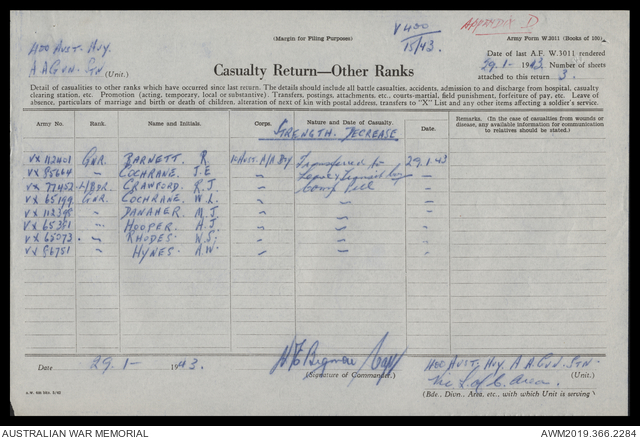 (Margin for Filing Purposes)
V 400
15/43.
APPENDIX D
Army Form W.3011 (Books of 100)
400 AUST. HVY.
A A GUN. STN. (Unit.)
Date of last A.F. W.3011 rendered
29.1- 1943. Number of sheets
attached to this return 3.
Casualty Return—Other Ranks
Detail of casualties to other ranks which have occurred since last return. The details should include all battle casualties, accidents, admission to and discharge from hospital, casualty
clearing station, etc. Promotion (acting, temporary, local or substantive). Transfers, postings, attachments, etc., courts-martial, field punishment, forfeiture of pay, etc. Leave of
absence, particulars of marriage and birth or death of children, alteration of next of kin with postal address, transfers to "X" List and any other items affecting a soldier's service.
Army No. Rank. Name and Initials. Corps. Nature and Date of Casualty. Date. Remarks. (In the case of casualties from wounds or
disease, any available information for communication
to relatives should be stated.)
STRENGTH. DECREASE
VX 112401 GNR. BARNETT. R. Transferred to 29.1.43
VX 85664 " COCHRANE. J.E " "
VX 77402 L/BDR. CRAWFORD. R.J " "
VX 65199 GNR. COCHRANE. W.L. " "
VX 112398 " DANAHER. M.J " "
VX 65351 " HOOPER. A.J " "
VX 65073. " RHODES. W.S. " "
VX 56751 " HYNES. A.W. " "
Date 29.1- 1943.
(Signature of Commander.)
400 AUST. HVY A A GUN. STN.
(Unit.)
Vic L of C. Area.
(Bde., Divn., Area, etc., with which Unit is serving)
AUSTRALIAN WAR MEMORIAL
AWM2019.366.2284